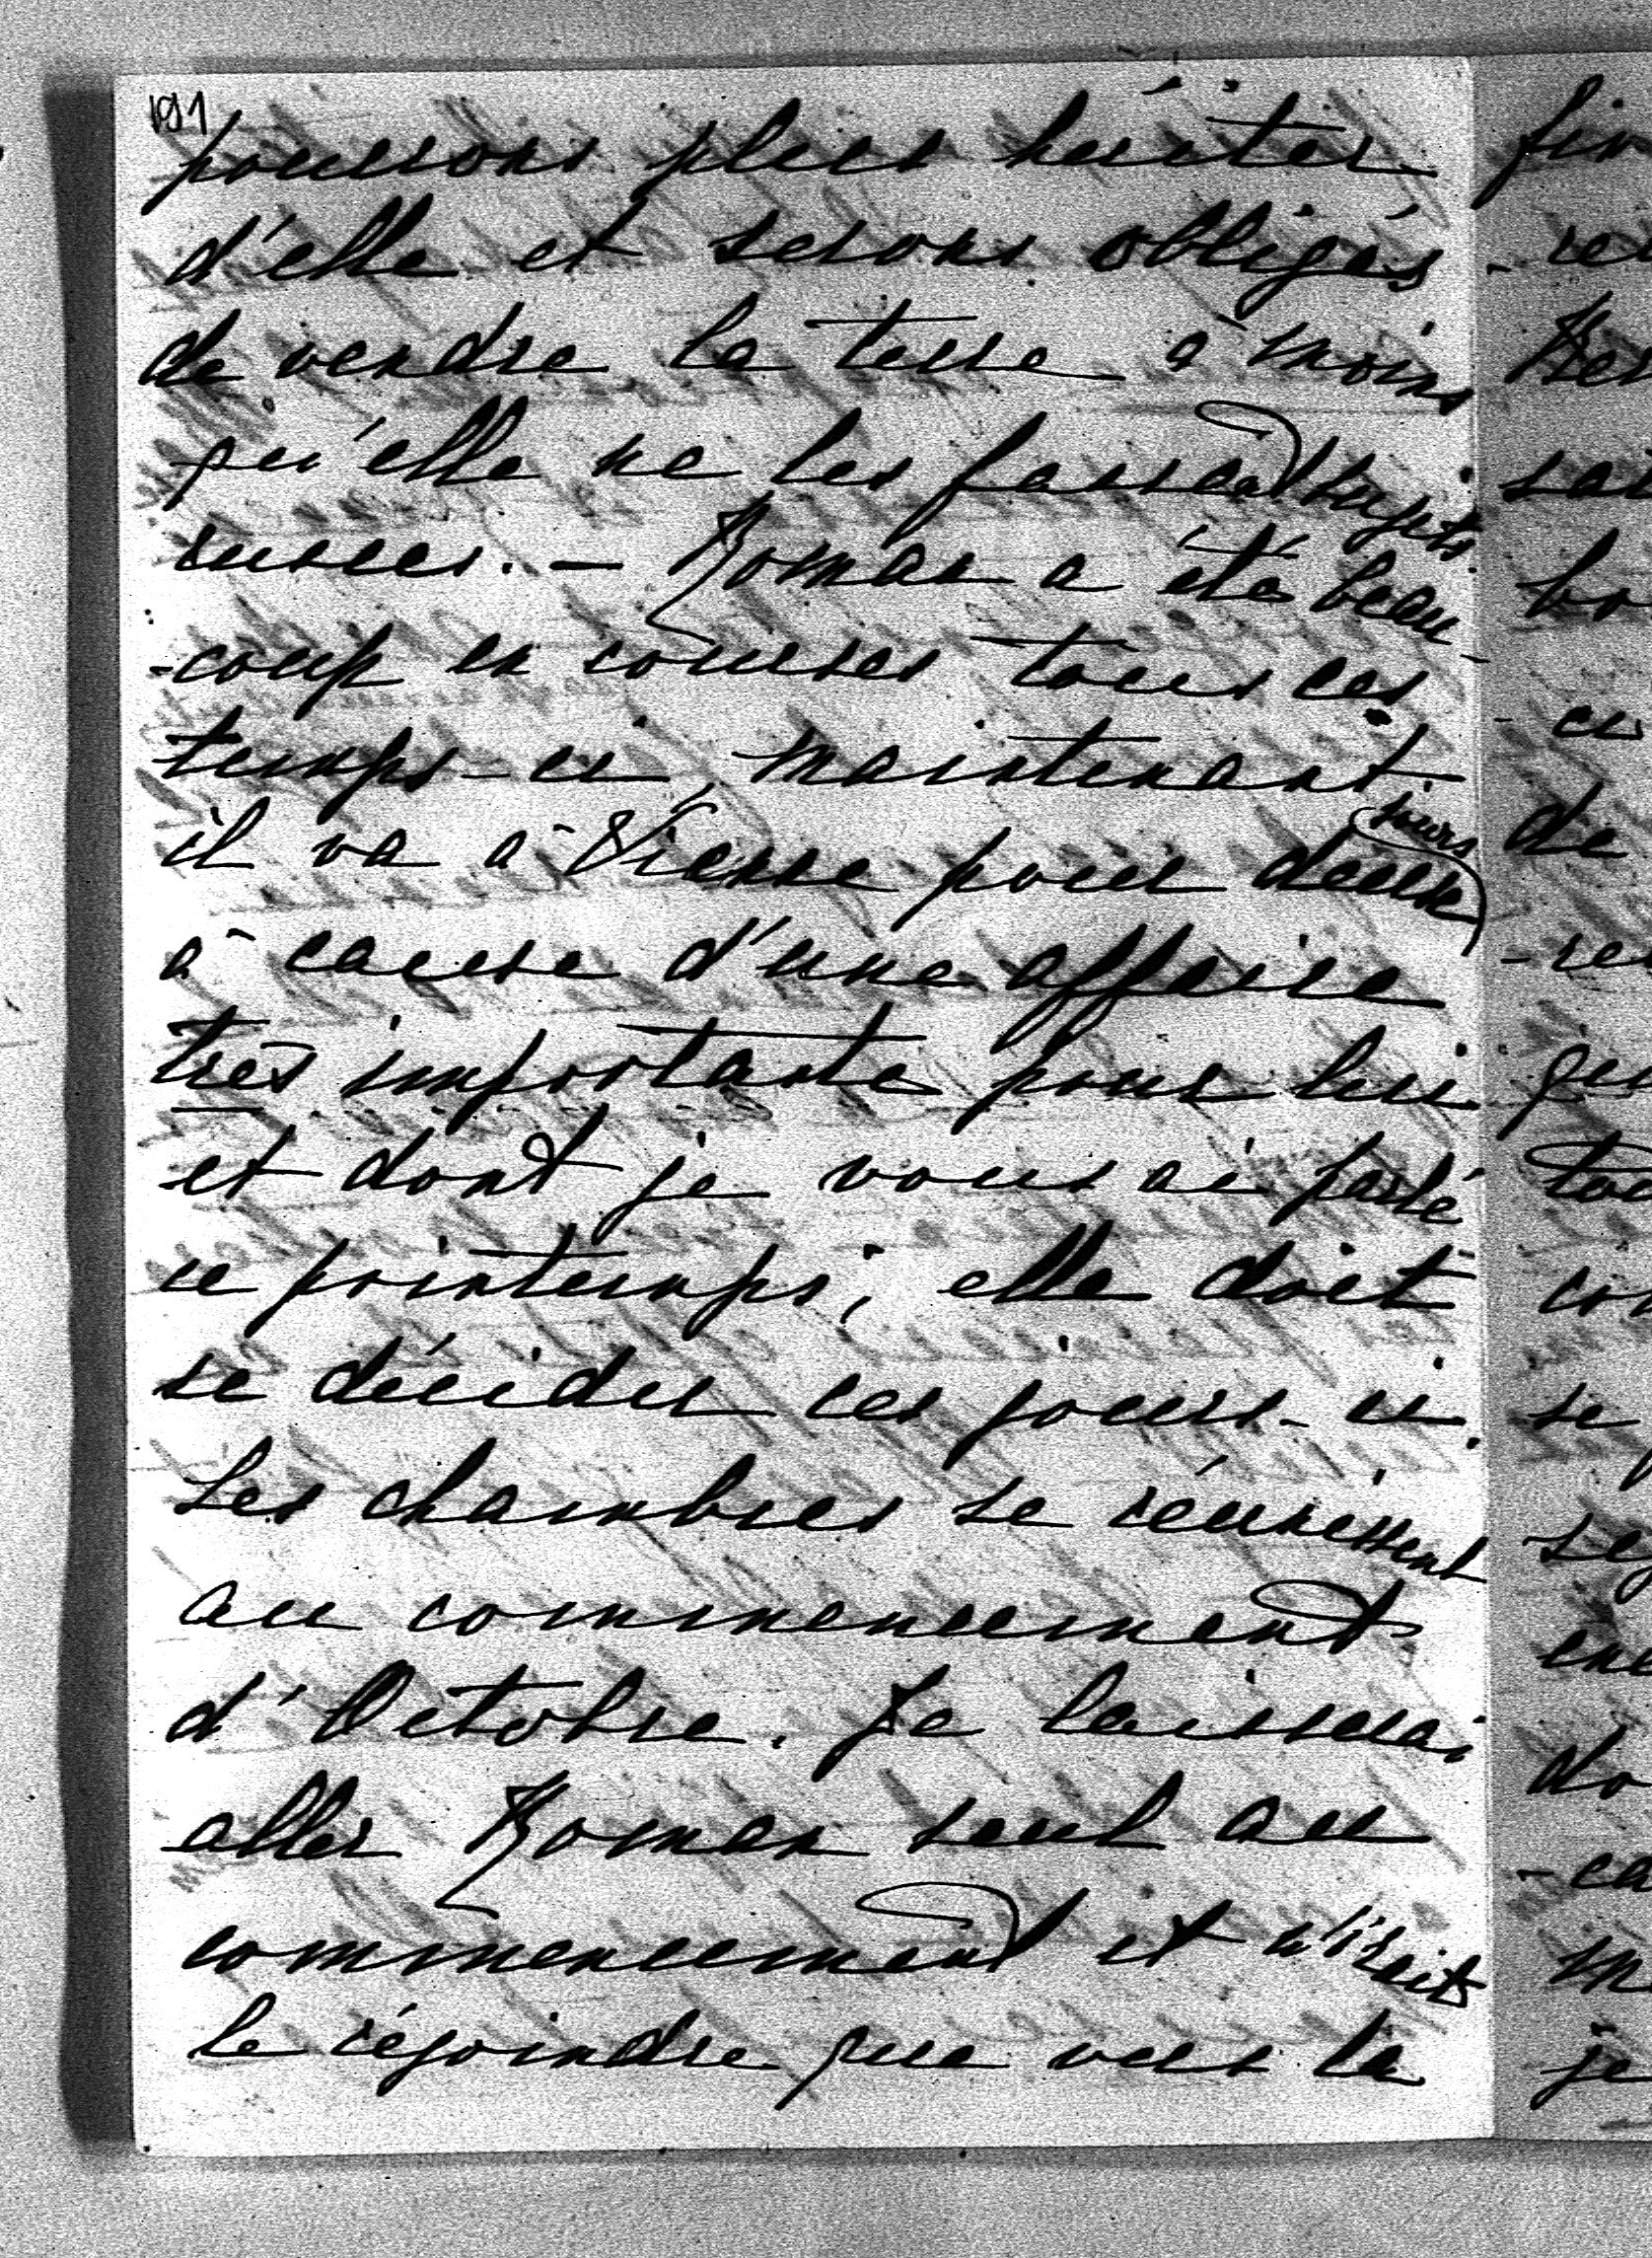 191
pourrons plus hériter
d'elle et serons obligés
de vendre la terre à moins
qu'elle ne les fassent sujets
russes. — Roman a été beau-
-coup en courses tous ces
temps-ci, maintenant
il va à Vienne pour deux jours
à cause d'une affaire
très importante pour lui
et dont je vous ai parlé
ce printemps; elle doit
se décider ces jours-ci.
Les chambres se réunissent
au commencement
d'Octobre. Je laisserai
aller Roman seul au
commencement et n'irais
le réjoindre que vers la